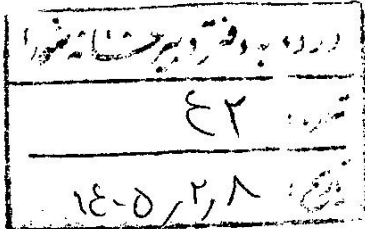 ورود به دفتر دبیرخانه شورا
شماره: ٤٢
تاریخ: ١٤٠٥/٢/٨